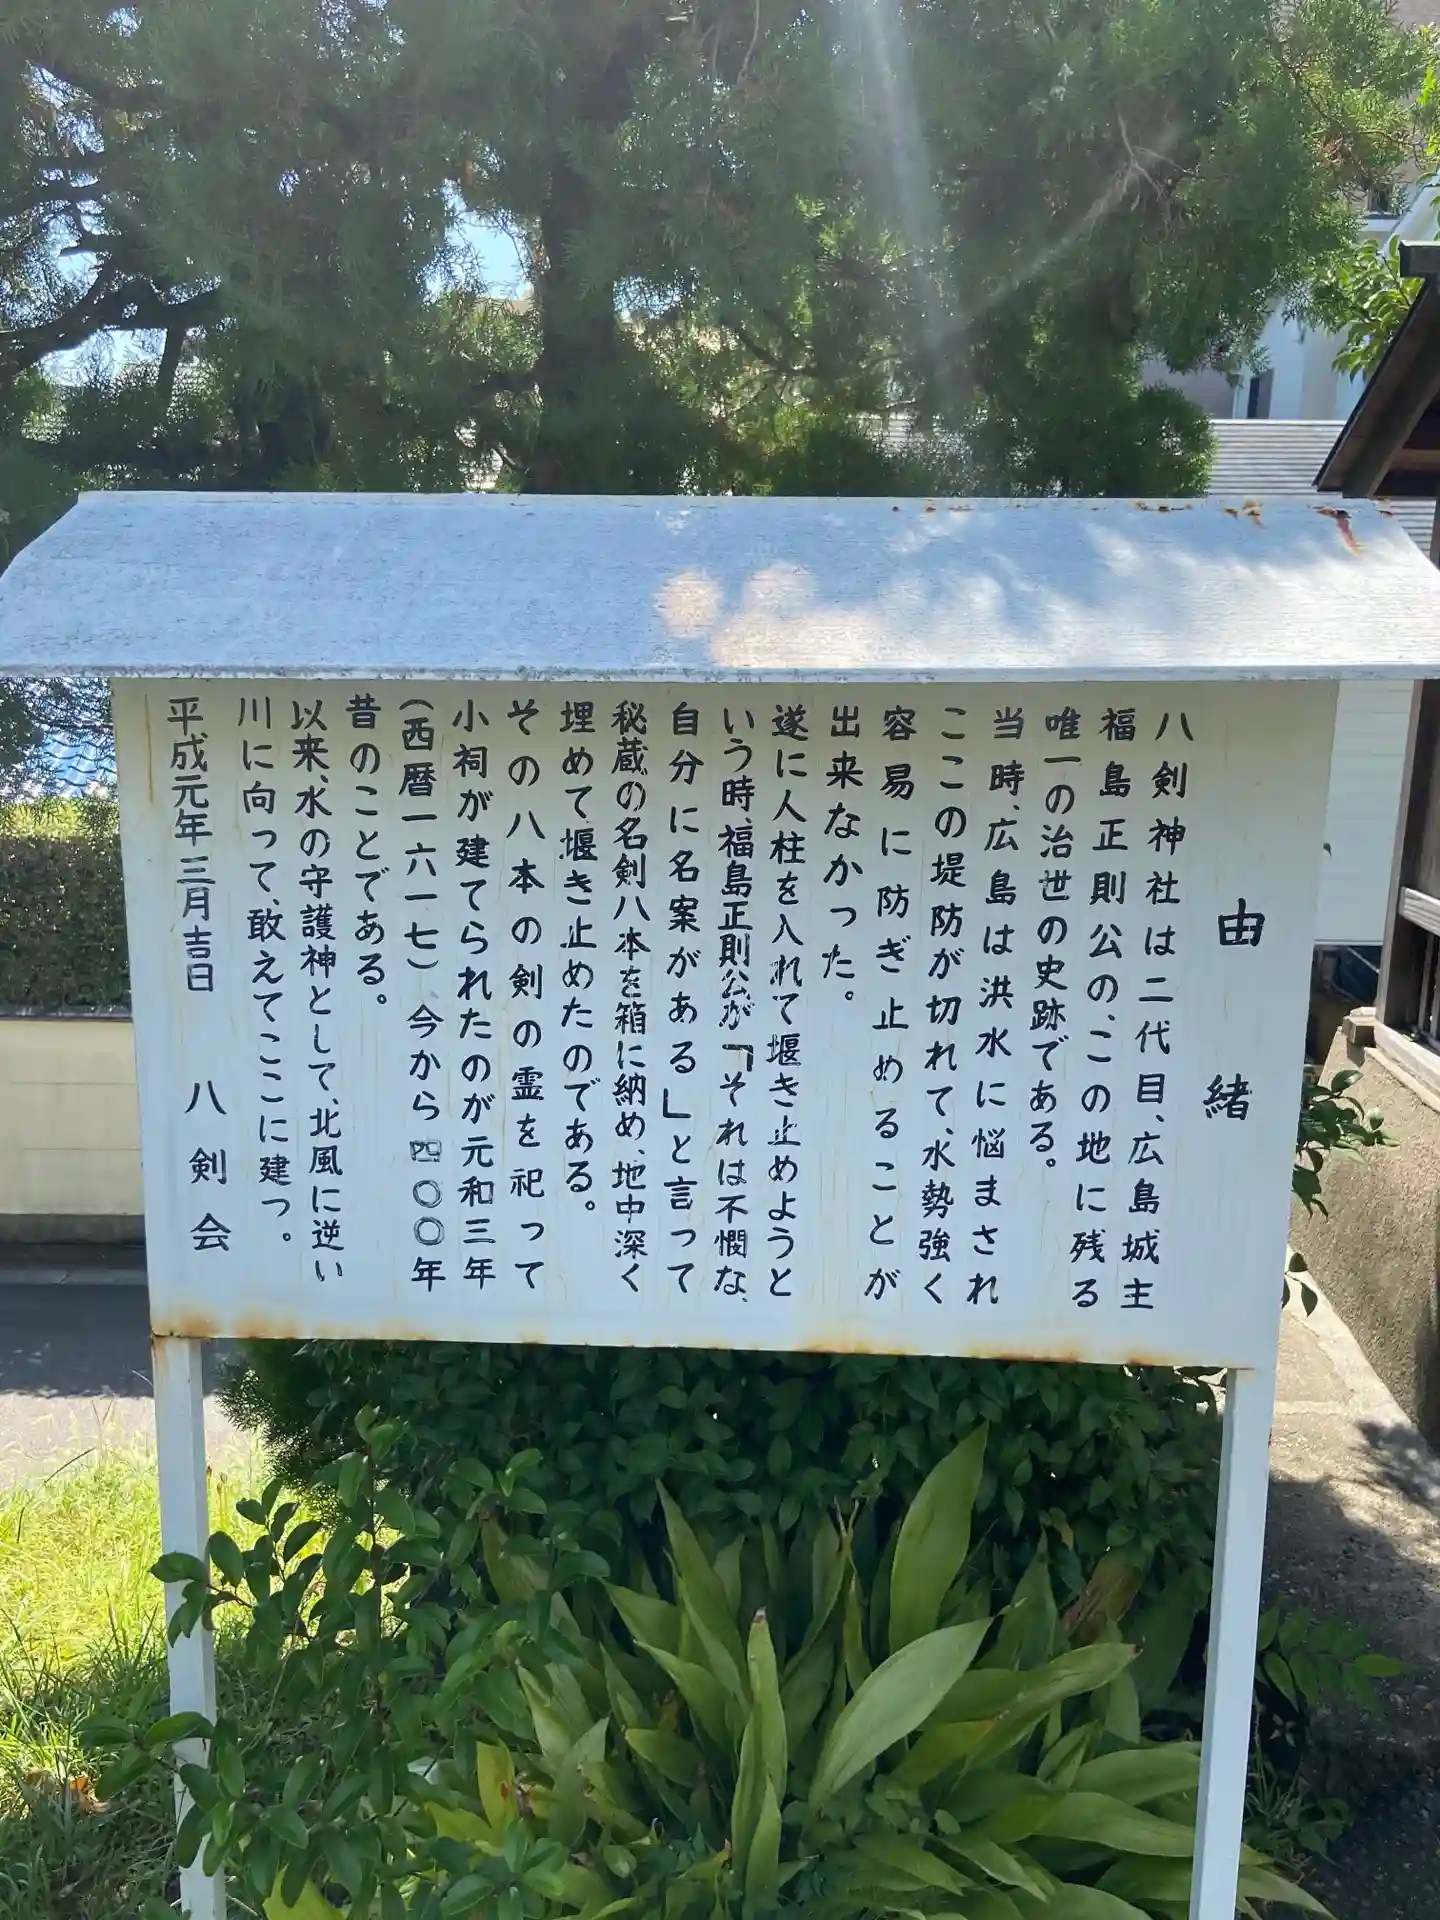 由緒
八剣神社は二代目、広島城主
福島正則公の、この地に残る
唯一の治世の史跡である。
当時、広島は洪水に悩まされ
ここの堤防が切れて、水勢強く
容易に防ぎ止めることが
出来なかった。
遂に人柱を入れて堰き止めようと
いう時、福島正則公が『それは不憫な、
自分に名案がある』と言って
秘蔵の名剣八本を箱に納め、地中深く
埋めて堰き止めたのである。
その八本の剣の霊を祀って
小祠が建てられたのが元和三年
(西暦一六一七)、今から四〇〇年
昔のことである。
以来、水の守護神として、北風に逆い
川に向って、敢えてここに建つ。
平成元年三月吉日 八剣会